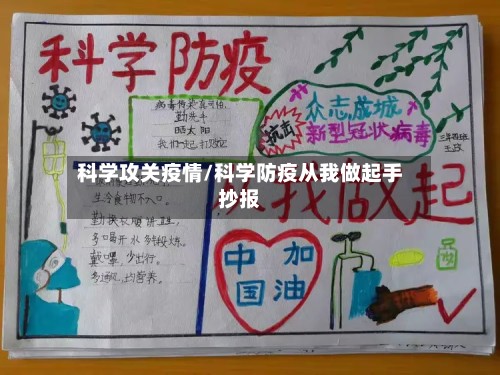 科学防疫
病毒传染真可怕,
勤洗手
晒太阳
我们一起打败它
众志成城
抗击
新型冠状病毒
三年四班
王政
科学攻关疫情/科学防疫从我做起手
抄报
我做起
生冷食物不入口。
勤换衣服讲卫生,
多喝开水多锻炼。
戴口罩,少出行。
多通风,均营养。
中国
加油